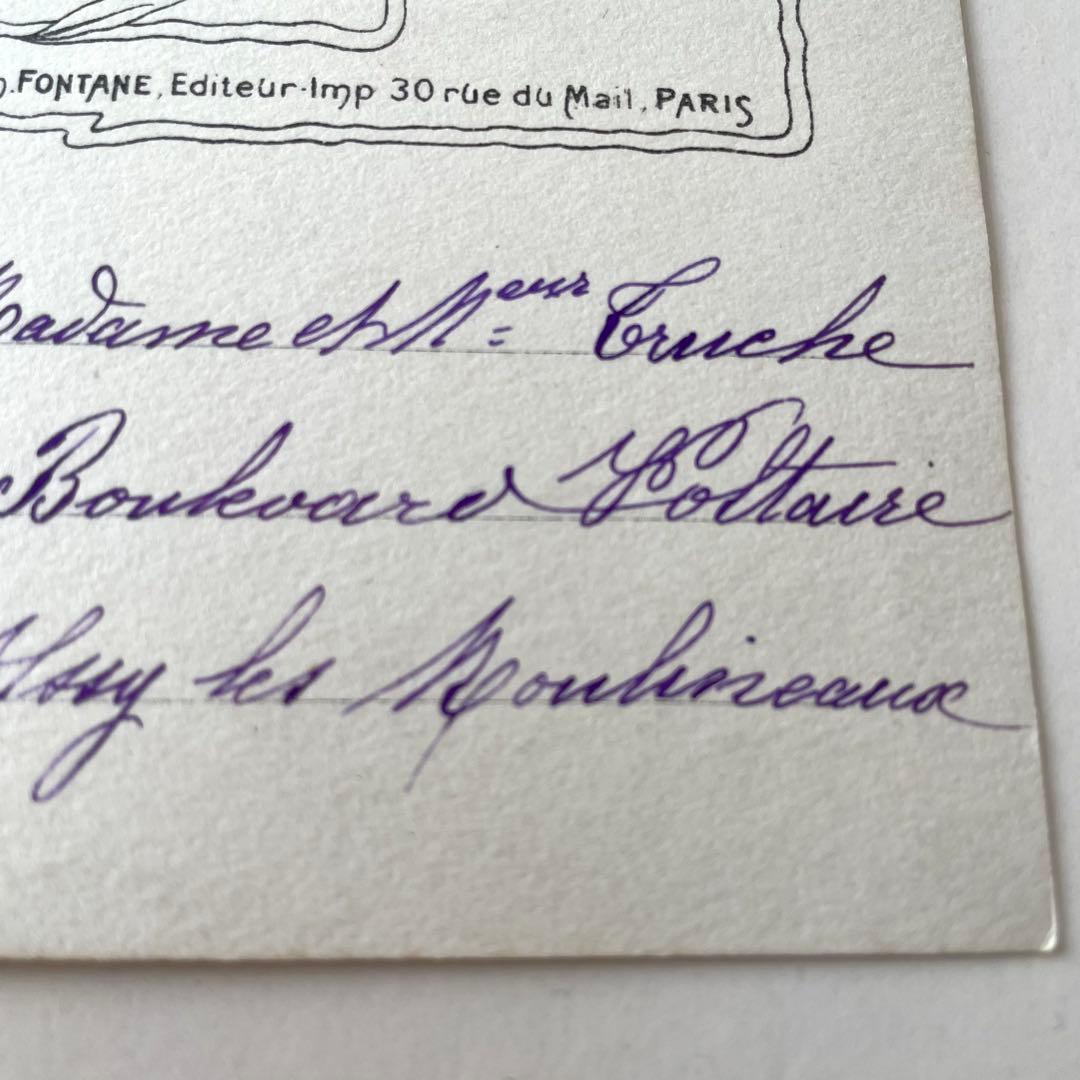 .FONTANE, Editeur-Imp 30 rue du Mail, PARIS
Madame et Meur Truche
Boulevard Voltaire
Issy les Moulineaux